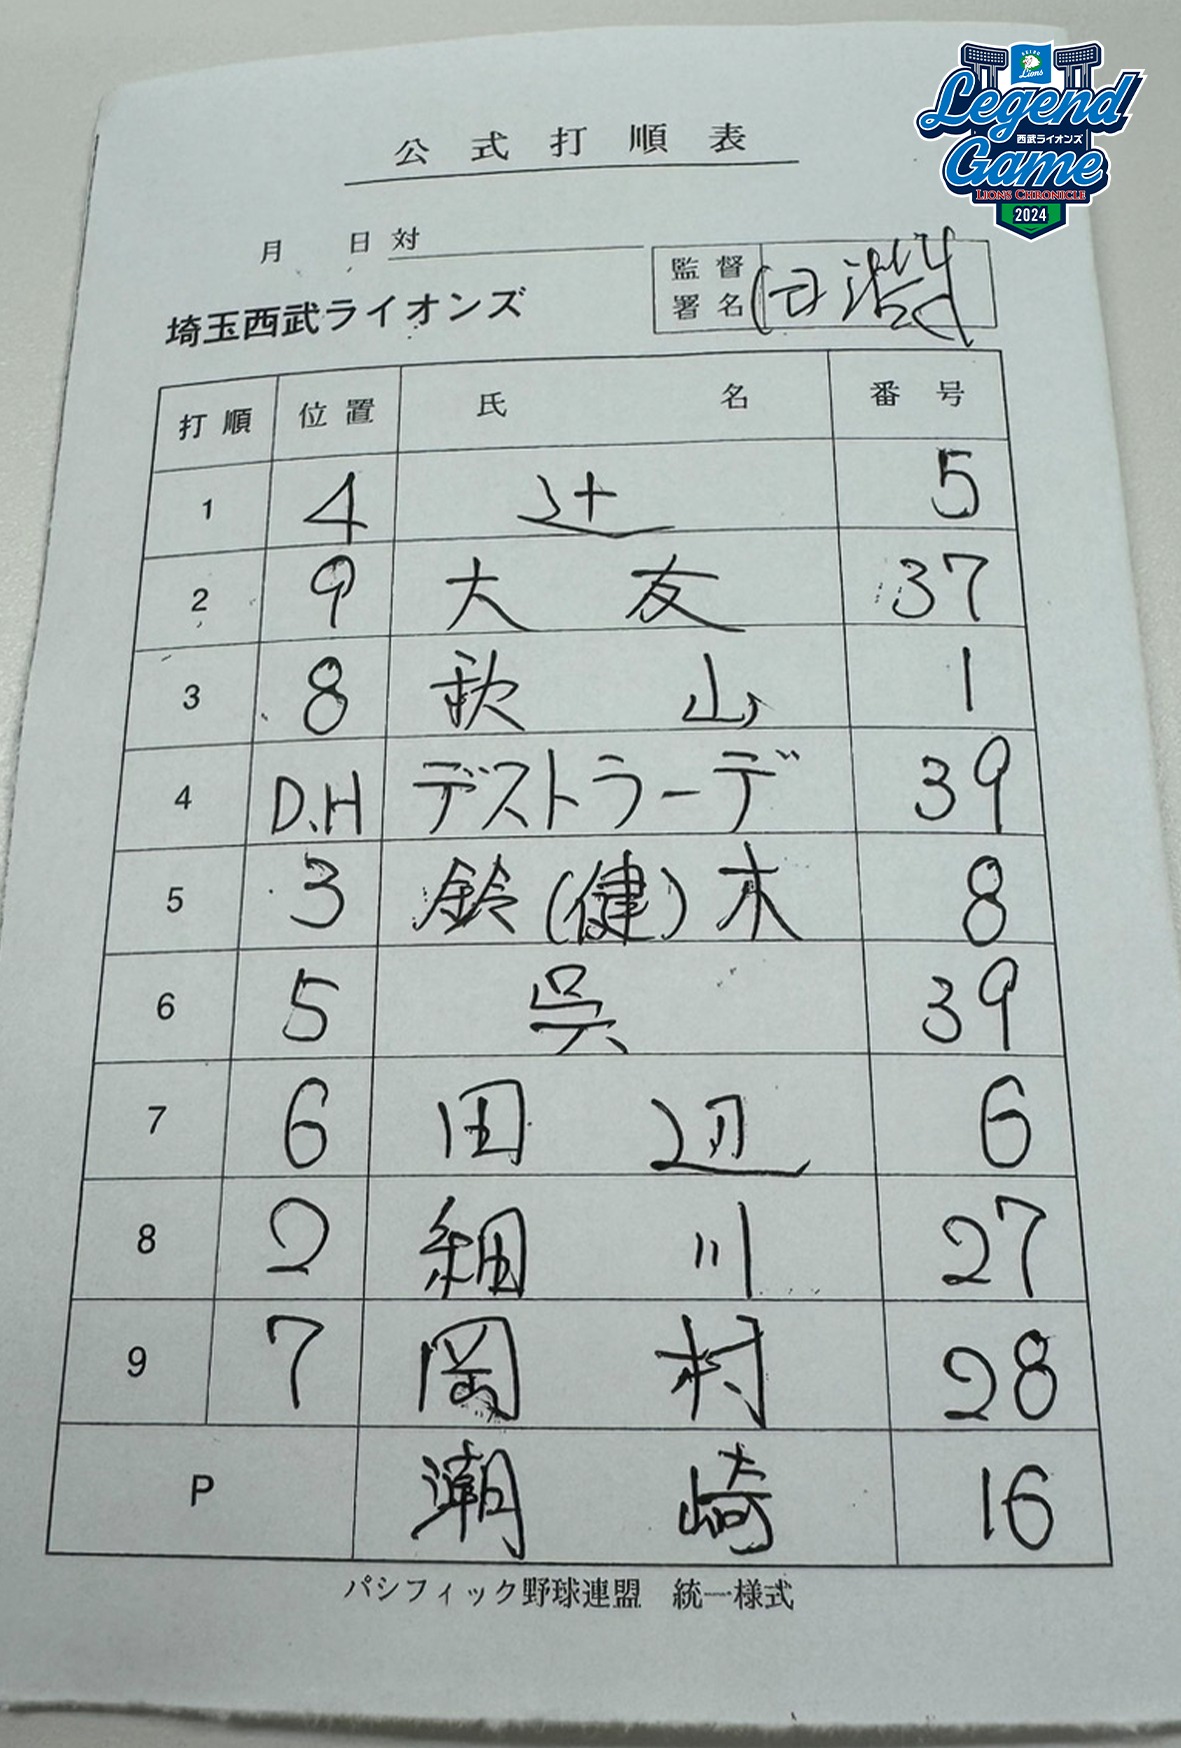 Lions
Legend
西武ライオンズ
Game
LIONS CHRONICLE
2024
公式打順表
月 日 対
埼玉西武ライオンズ
監督
署名
打順 位置 氏 名 番号
1 4 辻 5
2 9 大友 37
3 8 秋山 1
4 D.H デストラーデ 39
5 3 鈴(健)木 8
6 5 呉 39
7 6 田辺 6
8 2 細川 27
9 7 岡村 28
P 潮崎 16
パシフィック野球連盟 統一様式